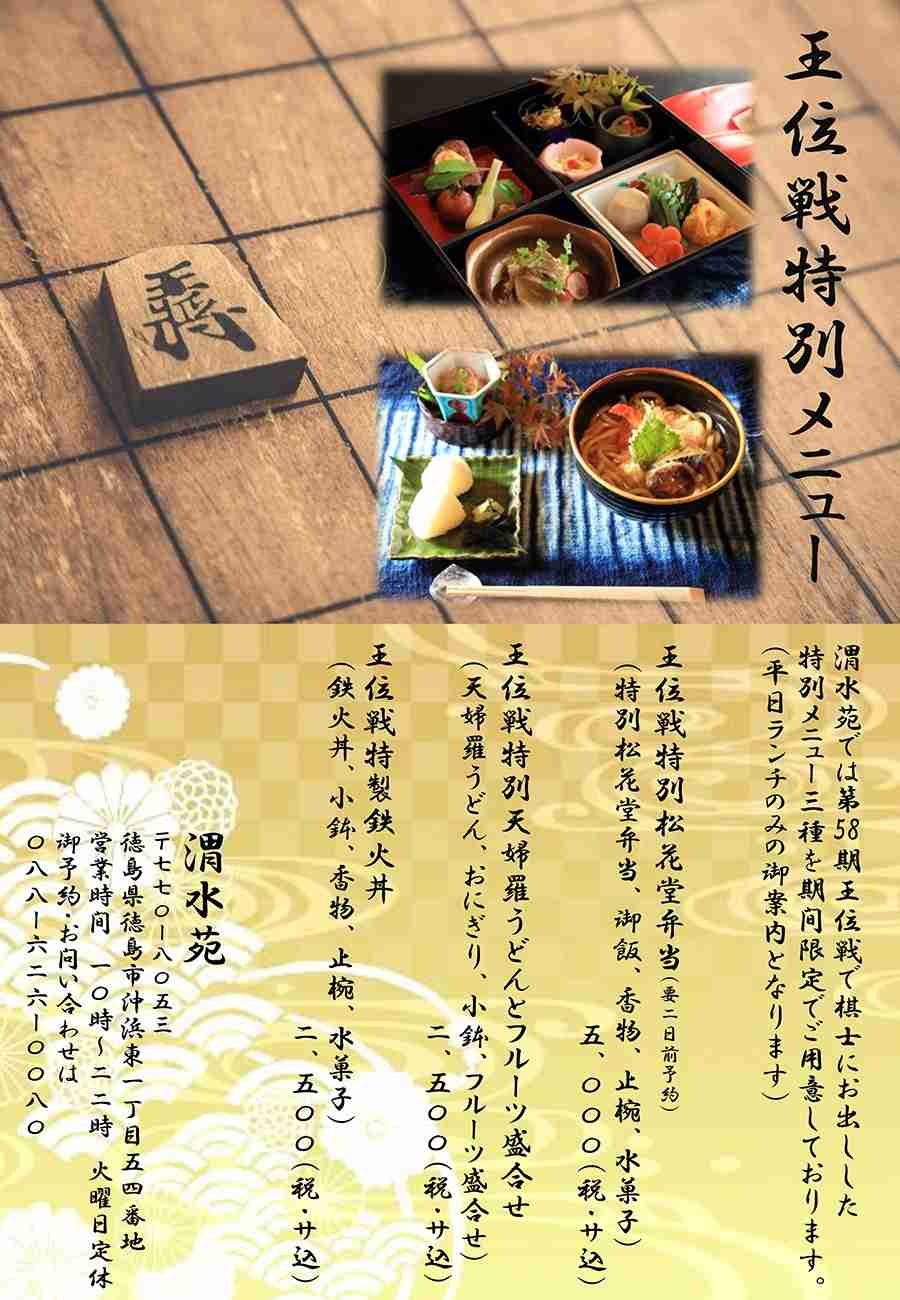 王位戦特別メニュー
渭水苑では第58期王位戦で棋士にお出しした
特別メニュー三種を期間限定でご用意しております。
(平日ランチのみの御案内となります)
王位戦特別松花堂弁当(要二日前予約)
(特別松花堂弁当、御飯、香物、止椀、水菓子)
五、〇〇〇(税・サ込)
王位戦特別天婦羅うどんとフルーツ盛合せ
(天婦羅うどん、おにぎり、小鉢、フルーツ盛合せ)
二、五〇〇(税・サ込)
王位戦特製鉄火丼
(鉄火丼、小鉢、香物、止椀、水菓子)
二、五〇〇(税・サ込)
渭水苑
〒七七〇ー八〇五三
徳島県徳島市沖浜東一丁目五四番地
営業時間 一〇時~二二時 火曜日定休
御予約・お問い合わせは
〇八八ー六二六ー〇〇八〇